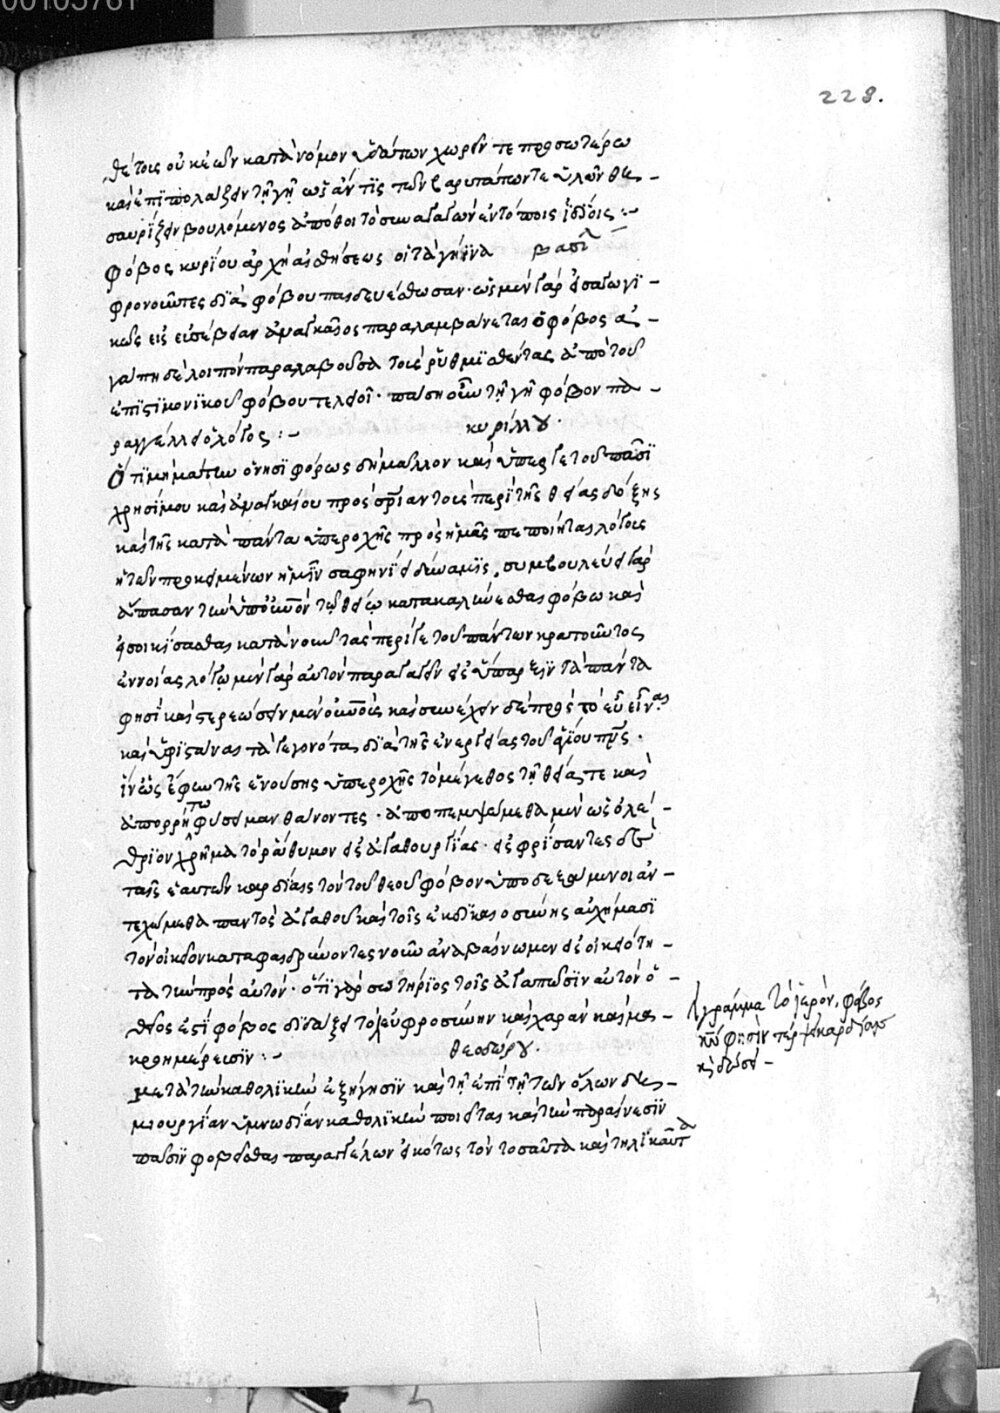 00105761
228.
θέτοις οὐκ ἐῶν κατὰ νόμον ὑδάτων χωρεῖν τε προσωτέρω
καὶ ἐπιπολάζειν τῇ γῇ ὡς ἄν τις τῶν
σαυρίζειν βουλόμενος ἀπόθοιτο συναγαγὼν ἐν τόποις ἰδίοις :–
φόβος κυρίου ἀρχὴ αἰσθήσεως οἱ τὰ γήϊνα βασιλ
φρονοῦντες διὰ φόβου παιδευέσθωσαν· ὡς μὲν γὰρ εἰσαγωγι–
κῶς εἰς εὐσέβειαν ἀναγκαῖος παραλαμβάνεται ὁ φόβος ἀ–
γάπη δὲ λοιπὸν παραλαβοῦσα τοὺς ῥυθμισθέντας ἀπὸ τοῦ
ἐπιστημονικοῦ φόβου τελειοῖ· πάσῃ οὖν τῇ γῇ φόβον πα–
ραγγέλλει ὁ λόγος :– κυρίλλου·
Ὅτι μὴ μάτην ὀνησιφόρως δὴ μᾶλλον καὶ ὑπέρ γε τοῦ πᾶσι
χρησίμου καὶ ἀναγκαίου πρὸς σρίαν τοὺς περὶ τῆς θείας δόξης
καὶ τῆς κατὰ πάντα ὑπεροχῆς πρὸς ἡμᾶς πεποίηται λόγους
ἡ τῶν προκειμένων ἡμῖν σαφηνιεῖ δύναμις. συμβουλεύει γὰρ
ἅπασαν τὴν ὑπ' οὐνὸν τῷ θείῳ κατακαλύνεσθαι φόβω καὶ
εἰσοικίσασθαι κατὰ νοῦν τὰς περί γε τοῦ πάντων κρατοῦντος
ἐννοίας λόγῳ μὲν γὰρ αὐτὸν παραγαγεῖν εἰς ὕπαρξιν τὰ πάντα
φησὶ καὶ στερεῶσαι μὲν οὐνοὺς καὶ συνέχειν δὲ πρὸς τὸ εὖ εἶναι
καὶ ὑφιστάναι τὰ γεγονότα διὰ τῆς ἐνεργείας τοῦ ἁγίου πνς·
ἵν' ὡς ἔφην τῆς ἐνούσης ὑπεροχῆς τὸ μέγεθος τῇ θείᾳ τε καὶ
ἀπορρήτῳ φύσει μανθάνοντες· ἀποπεμψώμεθα μὲν ὡς ὀλέ–
θριον χρῆμα τὸ ῥάθυμον εἰς ἀγαθουργίας· εἰσφρίσαντες δὲ
ταῖς ἑαυτῶν καρδίαις τὸν τοῦ θεοῦ φόβον ὑποδεξάμενοι ἀν–
τεχώμεθα παντὸς ἀγαθοῦ καὶ τοῖς ἐκ δικαιοσύνης αὐχήμασι
τὸν οἰκεῖον καταφαιδρύνοντες νοῦν ἀναβαίνωμεν εἰς οἰκειότη–
τα τὴν πρὸς αὐτόν· ὅτι γὰρ σωτήριος τοῖς ἀγαπῶσιν αὐτὸν ὁ
θεῖος ἐστὶ φόβος διδάξει τὸ εὐφροσύνην καὶ χαρὰν καὶ μα–
κροημέρευσιν :– θεοδώρου·
μετὰ τὴν καθολικὴν ἐξήγησιν καὶ τῇ ἐπὶ τῇ τῶν ὅλων δη–
μιουργίαν ὑμνωδίαν καθολικὴν ποιεῖται καὶ τὴν παραίνεσιν
πᾶσιν φοβεῖσθαι παραγγέλων εἰκότως τὸν τοσαῦτα καὶ τηλικαῦτα
γράμμα τὸ ἱερόν, φόβος
κυ φησὶν τέρψει καρδίαν
κ δώσει –